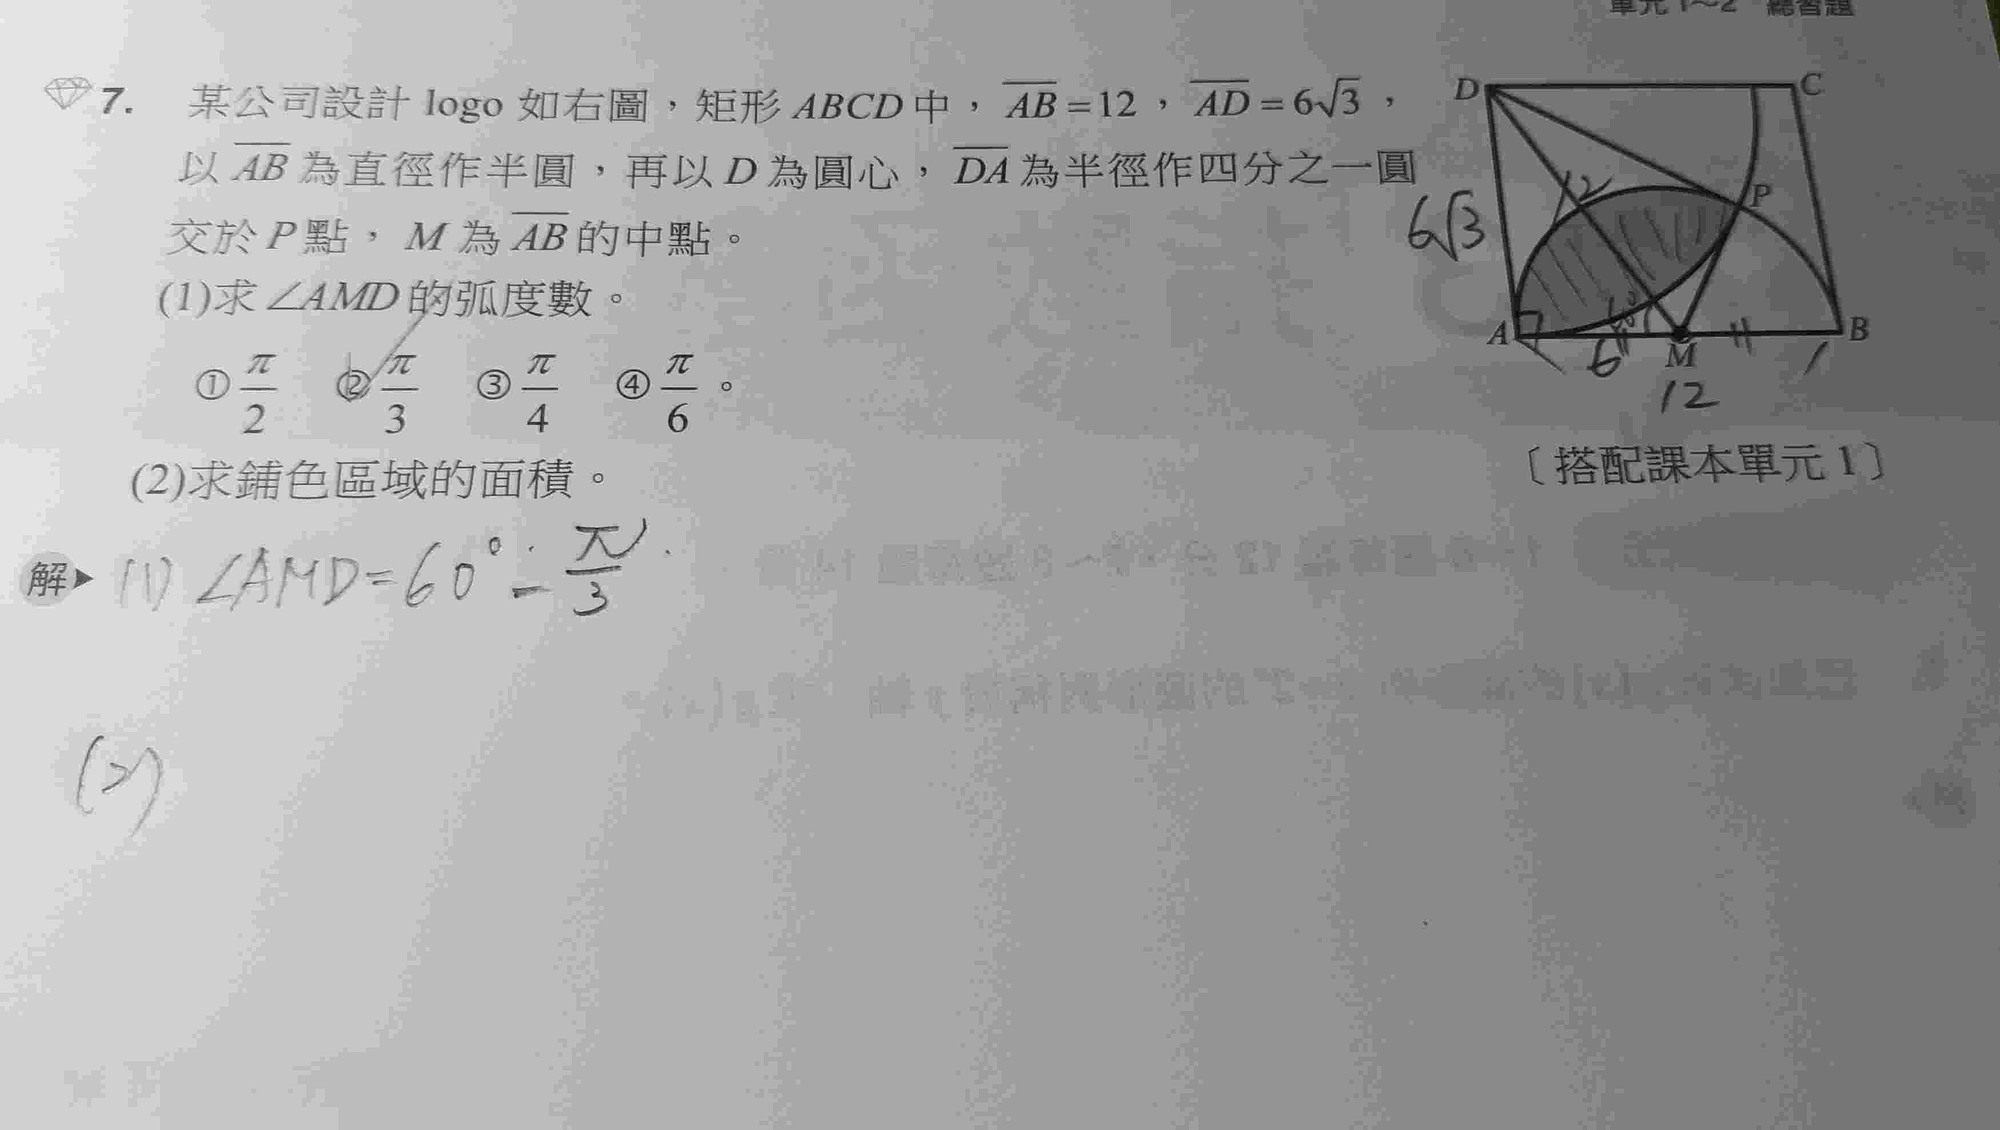 單元 1～2 總習題
7. 某公司設計 logo 如右圖，矩形 ABCD 中，AB=12，AD=6√3，
以 AB 為直徑作半圓，再以 D 為圓心，DA 為半徑作四分之一圓
交於 P 點，M 為 AB 的中點。
(1)求∠AMD 的弧度數。
① π/2 ② π/3 ③ π/4 ④ π/6。
(2)求鋪色區域的面積。
D C
12 P
6√3
60°
A B
6 M
12
〔搭配課本單元 1〕
解 (1) ∠AMD=60°= π/3
(2)